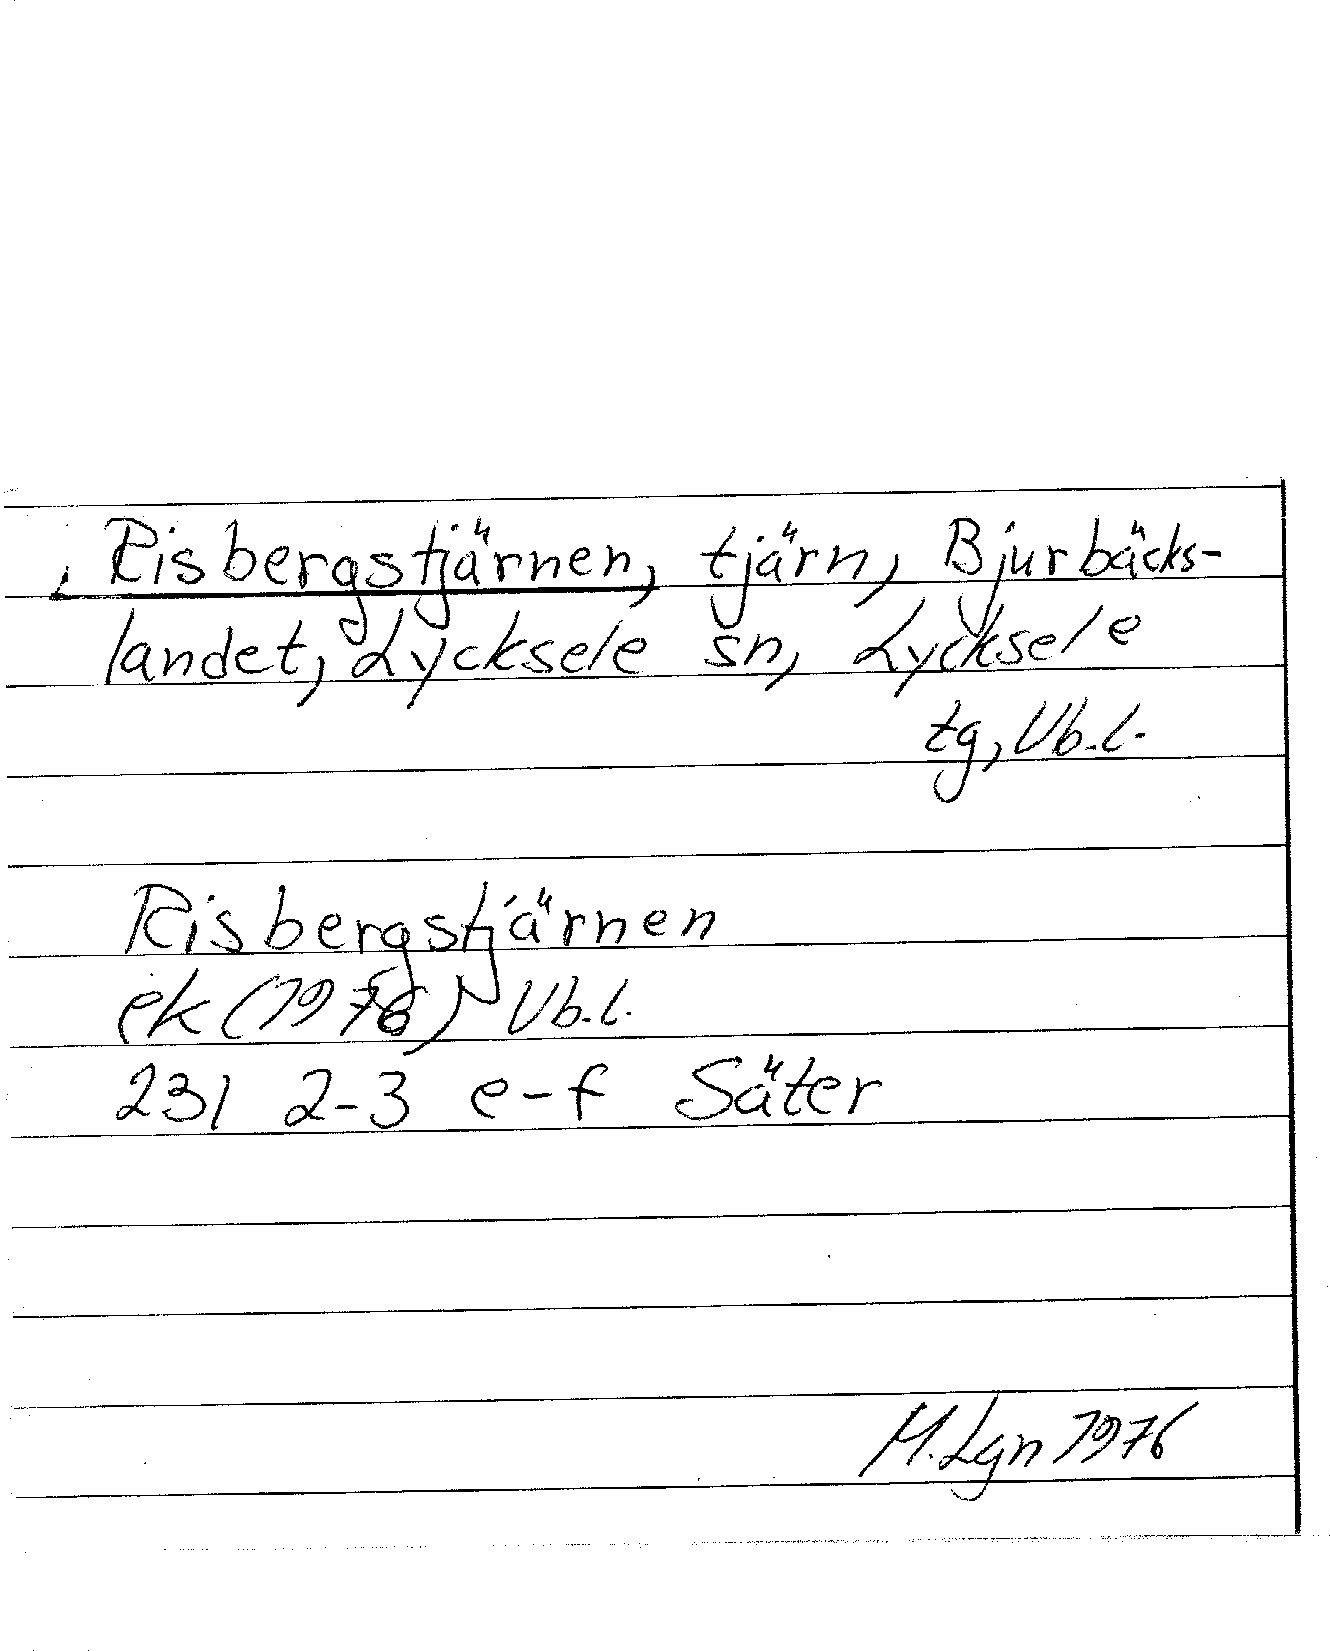 Risbergstjärnen, tjärn, Bjurbäcks-
landet, Lycksele sn, Lycksele
tg, Vb.l.
Risbergstjärnen
ek (1976) Vb.l.
231 2-3 e-f Säter
M. Lgn 1976